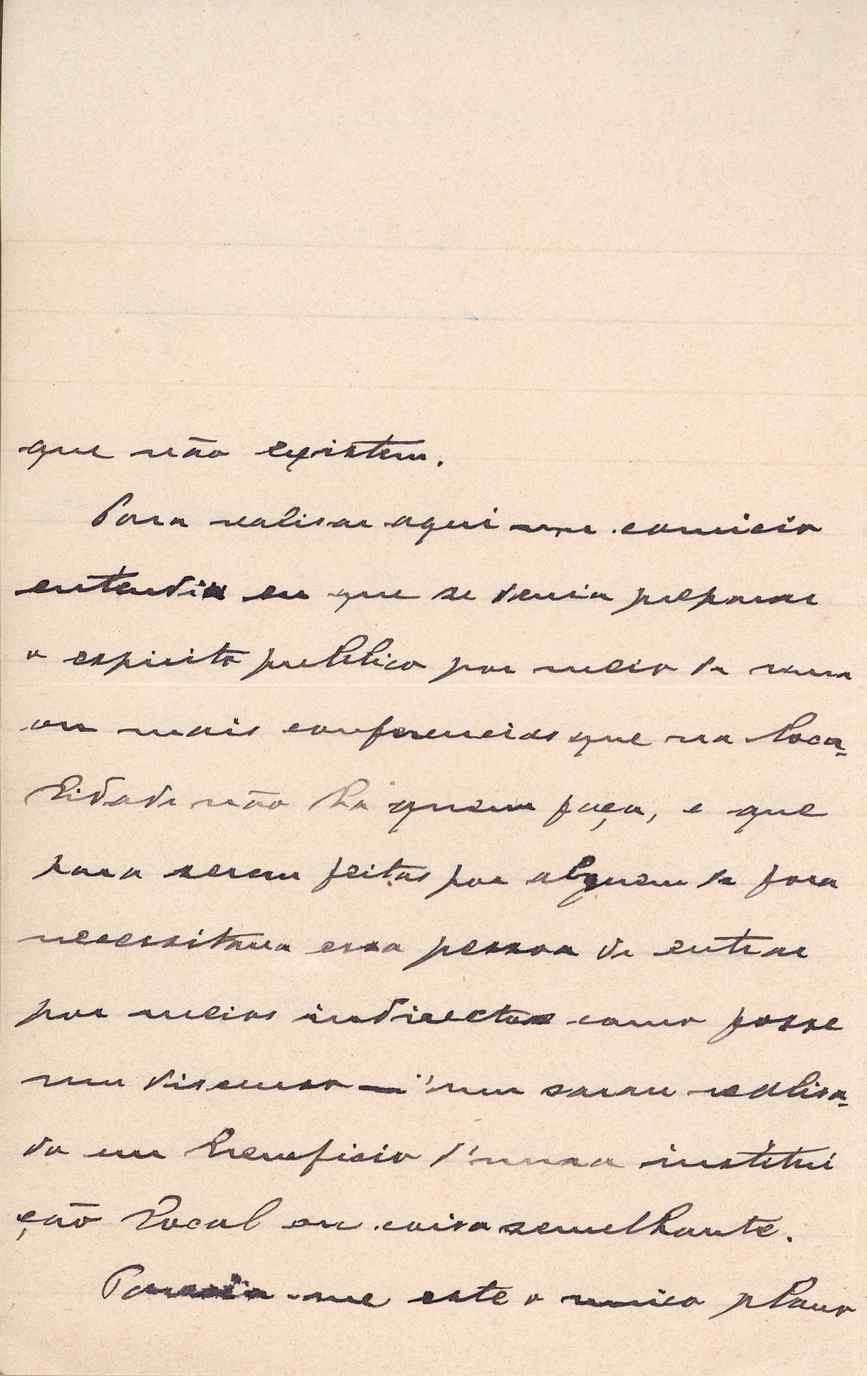 que não existem.
Para realisar aqui um comicio
entendia eu que se devia preparar
o espirito publico por meio de uma
ou mais conferencias que na loca-
lidade não há quem faça, e que
para serem feitas por alguem de fora
necessitava essa pessoa de entrar
por meios indirectos como fosse
um discurso n'um sarau realisa-
do em beneficio d'uma institui
ção local ou coisa semelhante.
Parecia-me este o unico plano